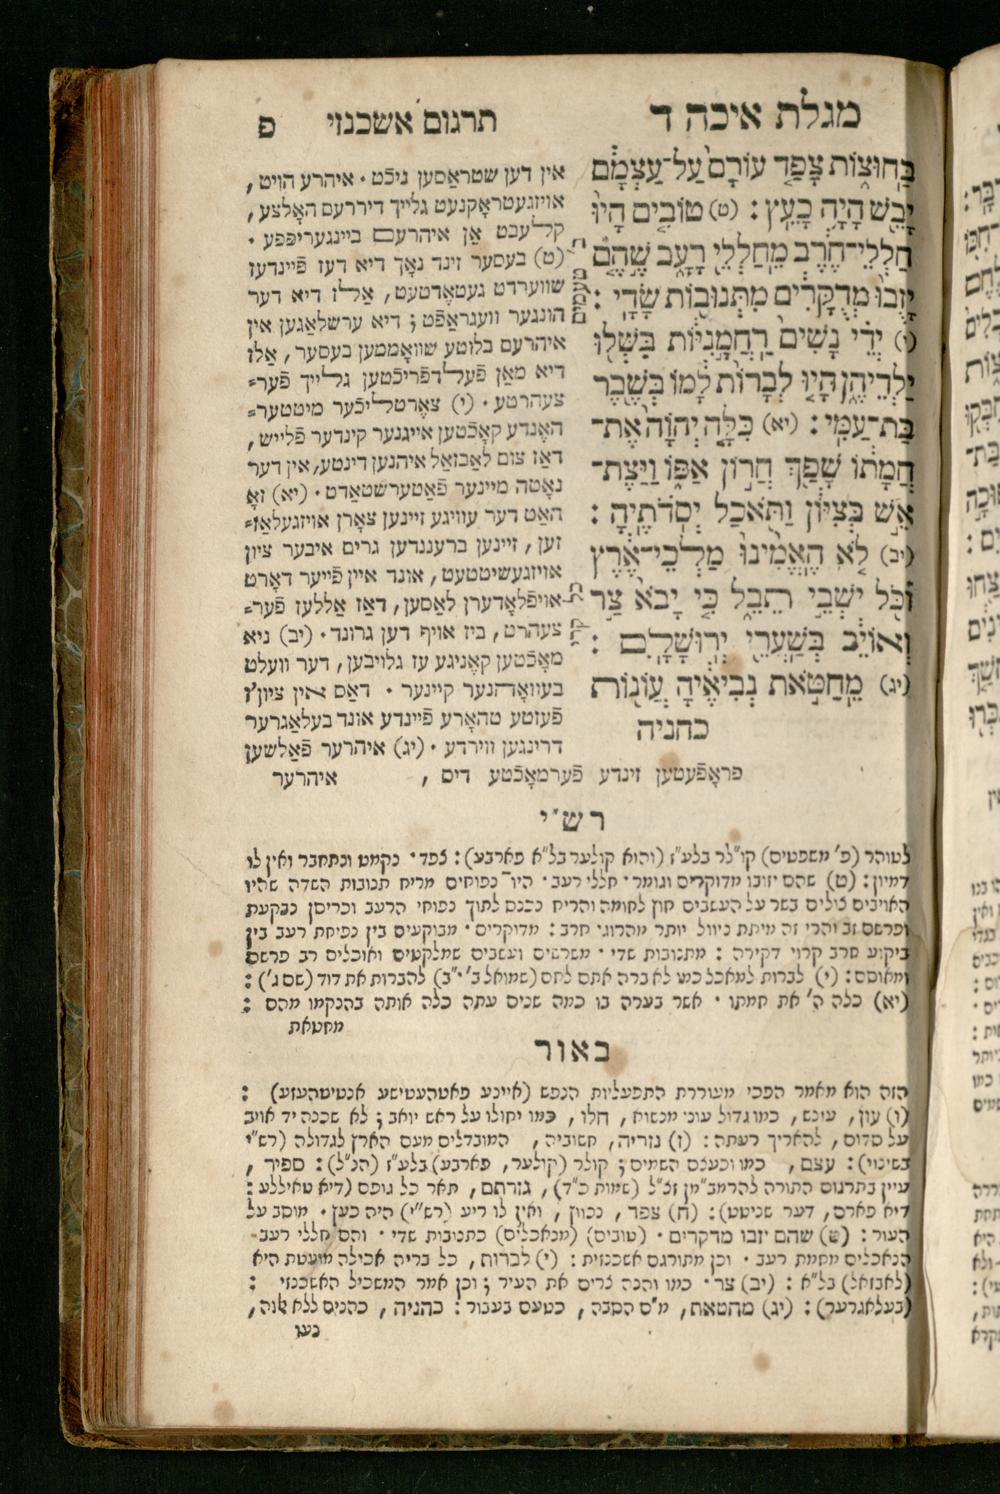 מגלת איכה ד
תרגום אשכנזי
פ
בַּחוּצוֹת צָפַד עוֹרָם עַל־עַצְמָם
יָבֵשׁ הָיָה כָעֵץ: (ט) טוֹבִים הָיוּ
חַלְלֵי־חֶרֶב מֵחַלְלֵי רָעָב שֶׁהֵם
יָזֻבוּ מְדֻקָּרִים מִתְּנוּבוֹת שָׂדָי:
(י) יְדֵי נָשִׁים רַחֲמָנִיּוֹת בִּשְּׁלוּ
יַלְדֵיהֶן הָיוּ לְבָרוֹת לָמוֹ בְּשֶׁבֶר
בַּת־עַמִּי: (יא) כִּלָּה יְהוָֹה אֶת־
חֲמָתוֹ שָׁפַךְ חֲרוֹן אַפּוֹ וַיַּצֶּת־
אֵשׁ בְּצִיּוֹן וַתֹּאכַל יְסֹדֹתֶיהָ:
(יב) לֹא הֶאֱמִינוּ מַלְכֵי־אֶרֶץ
וֹכֹּל יֹשְׁבֵי תֵבֵל כִּי יָבֹא צַר
וְאוֹיֵב בְּשַׁעֲרֵי יְרוּשָׁלִָם:
(יג) מֵחַטֹּאת נְבִיאֶיהָ עֲוֹנוֹת
כהניה
אין דען שטראַסען ניכֿט. איהרע הויט,
אויזגעטראָקנעט גלייך דיררעם האָלצע,
קלעבט אָן איהרעם ביינגעריפּפע.
(ט) בעסער זינד נאָך דיא דעז פֿיינדעז
שווערדט געטאָדטעט, אַלז דיא דער
הונגער וועגראַפֿט; דיא ערשלאַגען אין
איהרעם בלוטע שוואָממטען בעסער, אלז
דיא מאַן פֿעלדפֿריכֿטען גלייך פֿער=
צעהרטע. (י) צאָרטליכֿער מיטטער=
האֶנדע קאָכֿטען אייגנער קינדער פֿלייש,
דאז צום לאַבזאל איהנען דינטע, אין דער
נאָטה מיינער פֿאַטערשטאַדט. (יא) זאָ
האט דער עוויגע זיינען צאָרן אויזגעלאַז=
זען, זיינען ברעננדען גרים איבער ציון
אויזגעשיטטעט, אונד איין פֿייער דאָרט
אויפֿלאָדערן לאַסען, דאז אַללעז פֿער=
צעהרט, ביז אויף דען גרונד. (יב) ניא
מאָכֿטען קאָניגע עז גלויבען, דער וועלט
בעוואָהנער קיינער. דאַס אין ציון'ז
פֿעזטע טהאָרע פֿיינדע אונד בעלאַגרער
דרינגען ווירדע. (יג) איהרער פֿאַלשען
פראָפֿעטען זינדע פֿערמאָכֿטע דיס,
איהרער
רש"י
לטוהר (פ' משפטים) קו"לר בלע"ז (והוא קולער בל"א פארבע): צפד. נקמט ונתחבר ואין לו
דמיון: (ט) שהם יזובו מדוקרים וגומר. חללי רעב. היו נפוחים מריח תנובות השדה שהיו
האויבים צולים בשר על העשבים חוץ לחומה והריח נכנס לתוך נפוחי הרעב וכריסן נבקעת
ופרשם זב והרי זה מיתת ניוול יותר מהרוגי חרב: מדוקרים. מבוקעים בין נפיחת רעב בין
ביקוע חרב קרוי דקירה: מתנובות שדי. משרשים ועשבים שמלקטים ואוכלים רב פרשם
ומאוסם: (י) לברות למאכל כמו לא ברה אתם לחם (שמואל ב' י"ב) להברות את דוד (שם ג'):
(יא) כלה ה' את חמתו. אשר בערה בו כמה שנים עתה כלה אותה בהנקמו מהם:
מחטאת
באור
הזה הוא מאמר הפכי מעוררת התפעליות הנפש (איינע פאטהעטישע אנטיטהעזע):
(ו) עון, עונש, כמו גדול עוני מנשוא, חלו, כמו יחולו על ראש יואב; לא שכנה יד אויב
על סדום, להאריך רעתה: (ז) נזריה, חשוביה, המובדלים מעם הארץ לגדולה (רש"י
בשינוי): עצם, כמו וכעצם השמים; קולר (קולער, פארבע) בלע"ז (הנ"ל): ספיר,
עיין בתרגום התורה להרמב"מן זצ"ל (שמות כ"ד), גזרתם, תאר כל גופם (דיא טאיללע:
דיא פארם, דער שניטט): (ח) צפד, נכווץ, ואין לו ריע (רש"י) היה כעץ. מוסב על
העור: (ט) שהם יזבו מדקרים. (טובים) (מנאכלים) כתנובות שדי. והם חללי רעב.
הנאכלים מחמת רעב. וכן מתורגם אשכנזית: (י) לברות, כל בריה אכילה מועטת היא
(לאבזאל) בל"א: (יב) צר. כמו והנה צרים את העיר; וכן אמר המשכיל האשכנזי:
(בעלאגרער): (יג) מחטאת, מ"ם הסבה, כטעם בעבור: כהניה, כהנים ללא אלוה,
נעו